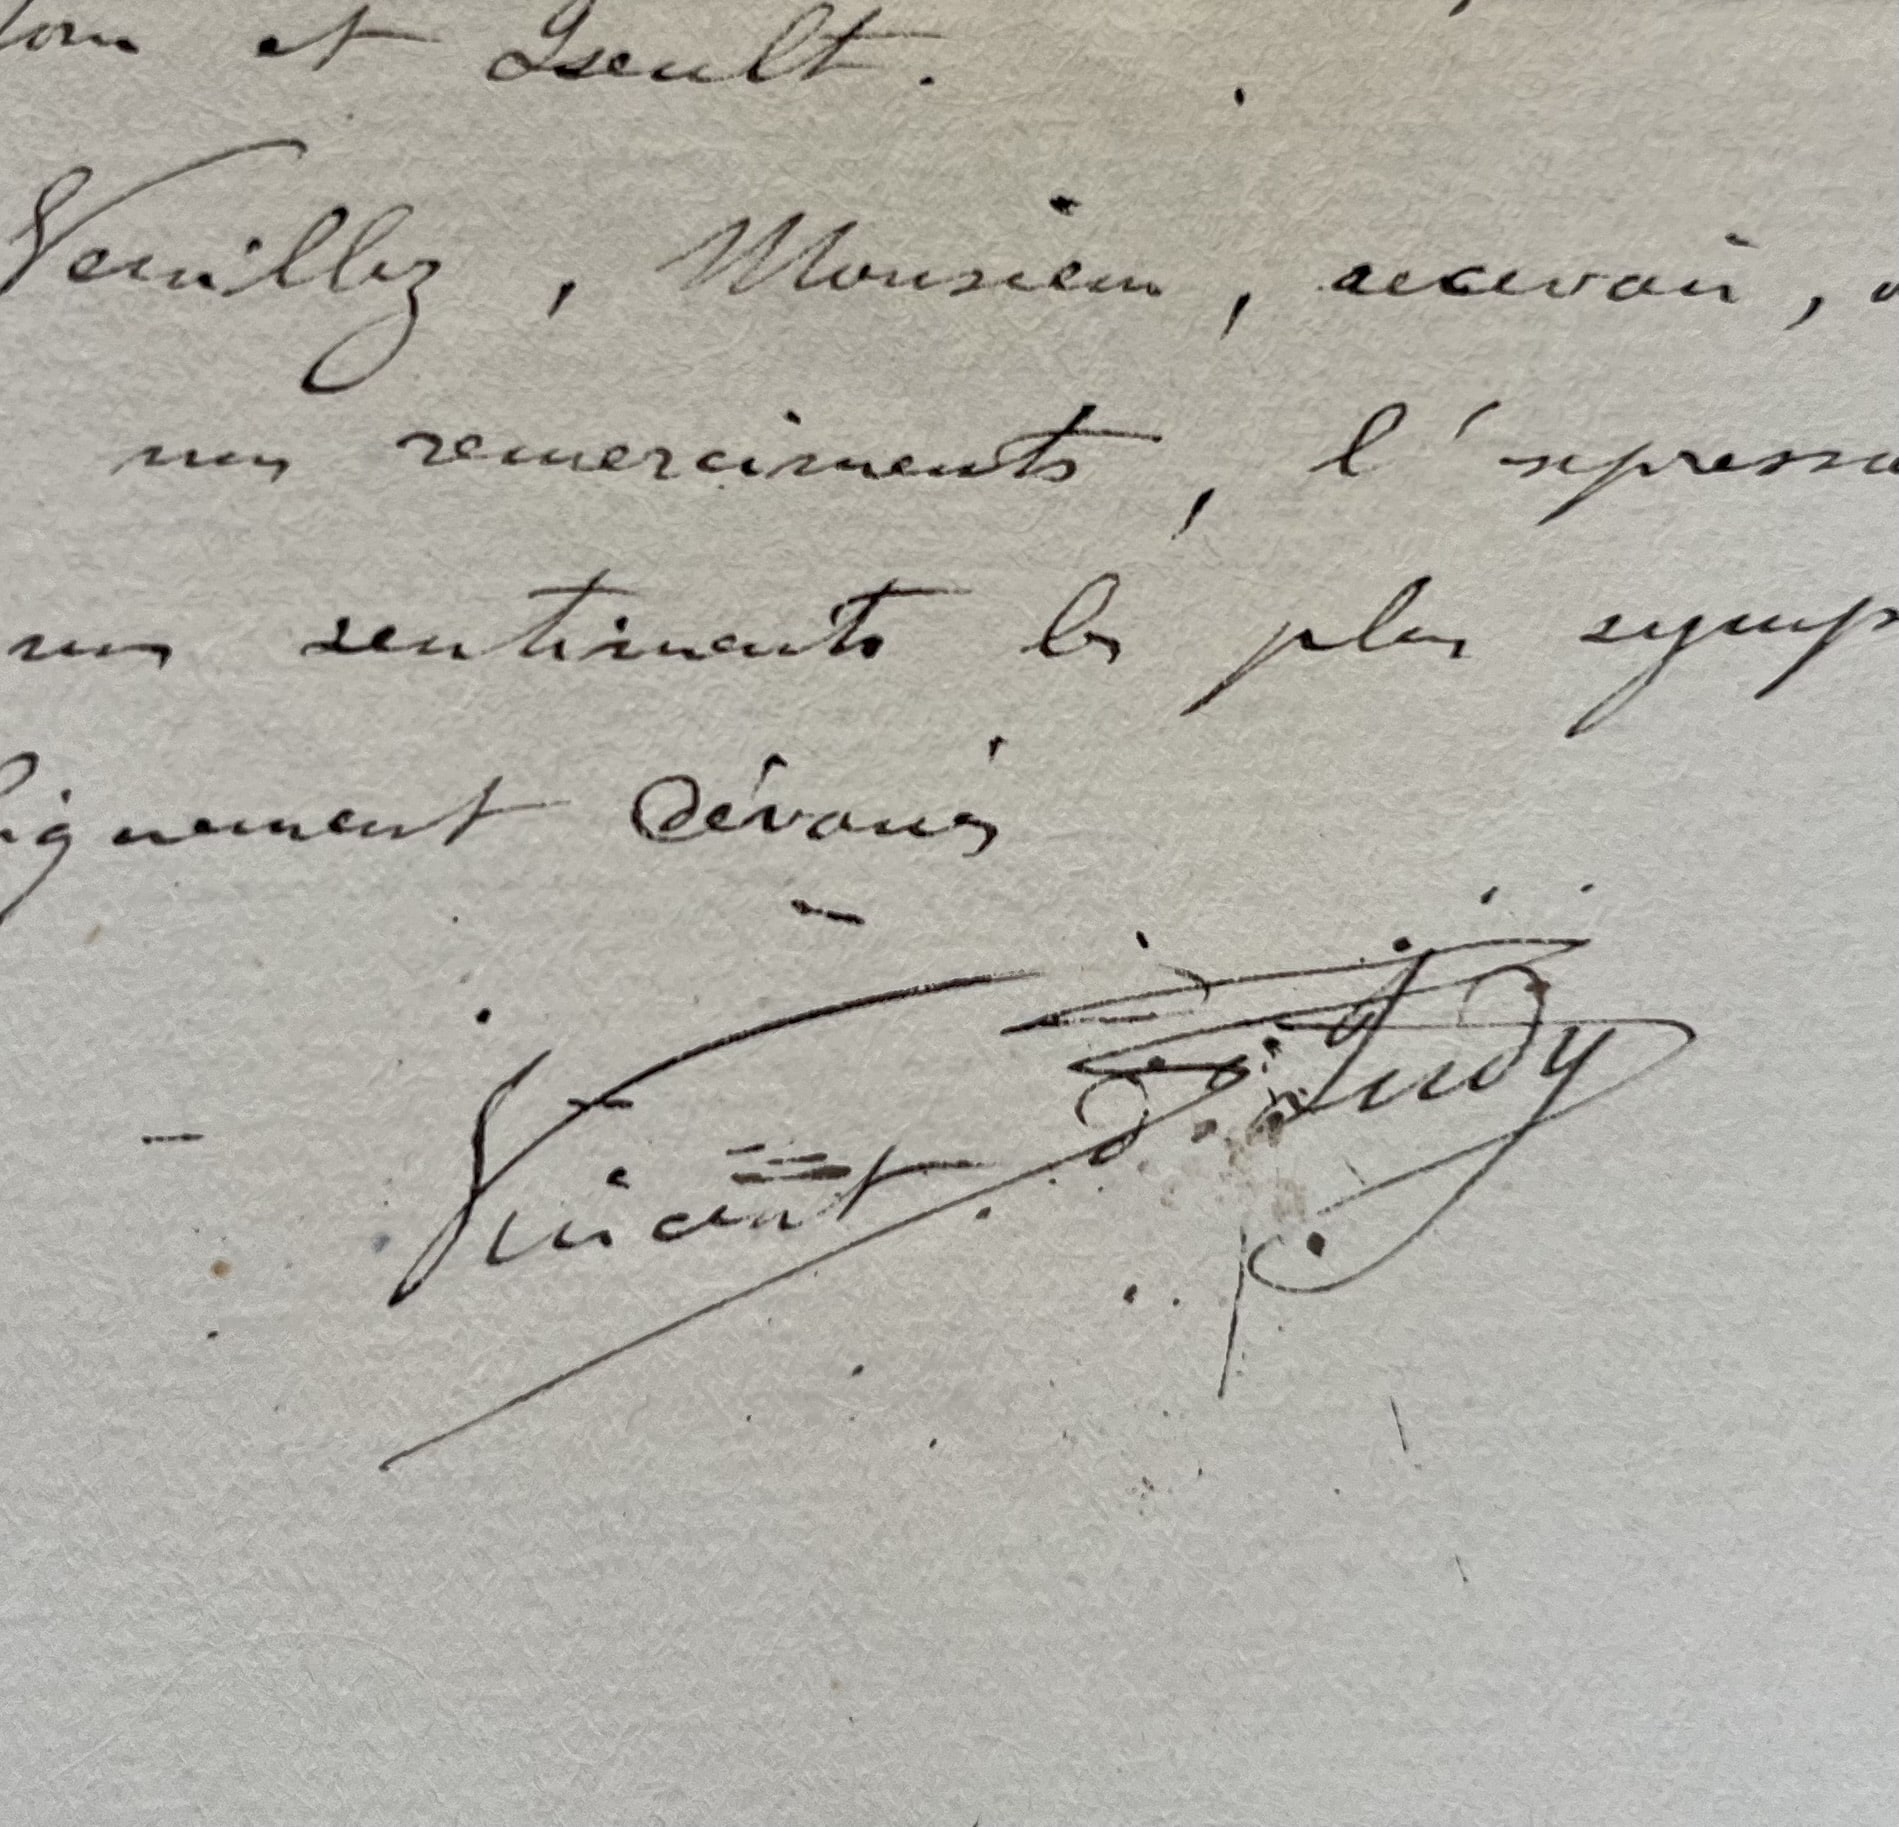 et Iseult.
Veuillez, Monsieur, recevoir,
mes remerciments, l'expressi
mes sentiments les plus symp
dévoués
Vincent d'Indy